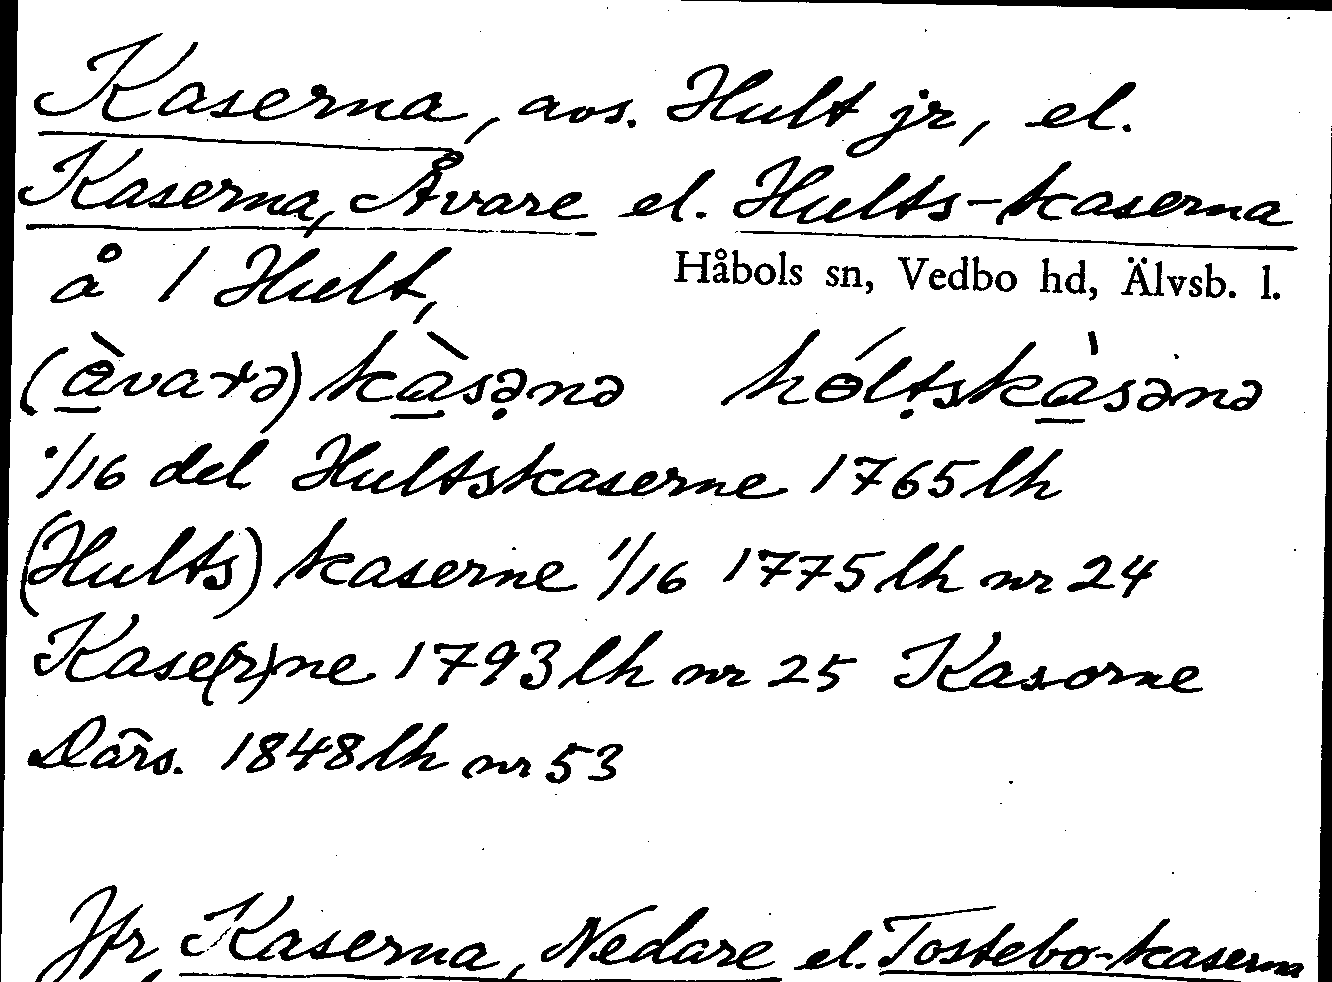 Kaserna, avs. Hult jr, el.
Kaserna, Åvare el. Hults-kaserna
å 1 Hult,
Håbols sn, Vedbo hd, Älvsb. l.
kàsənə
1/16 del Hultskaserne 1765 lh
(Hults) kaserne 1/16 1775 lh nr 24
Kase(r)ne 1793 lh nr 25 Kasorne
Därs. 1848 lh nr 53
Jfr Kaserna, Nedare el. Tostebo-kaserna